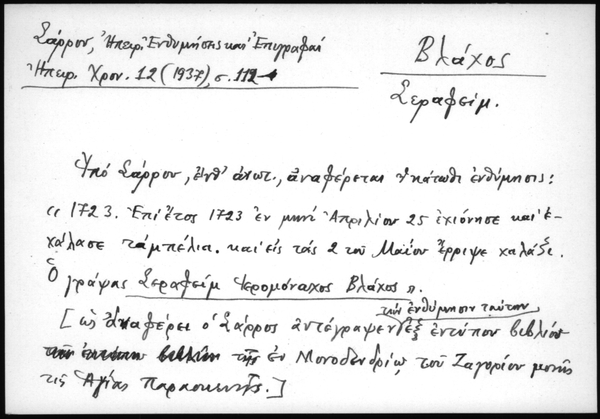 Σάρρου, Ἠπειρ. Ἐνθυμήσεις καὶ Ἐπιγραφαί
Ἠπειρ. Χρον. 12 (1937), σ. 112
Βλάχος
Σεραφείμ.
Ὑπὸ Σάρρου, ἔνθ' ἀνωτ., ἀναφέρεται ἡ κάτωθι ἐνθύμησις:
« 1723. Ἐπὶ ἔτος 1723 ἐν μηνὶ Ἀπριλίου 25 ἐχιόνησε καὶ ἐ-
χάλασε τἀμπέλια. καὶ εἰς τὰς 2 τοῦ Μαΐου ἔρριψε χαλάζι.
Ὁ γράψας Σεραφεὶμ Ἱερομόναχος Βλάχος ».
[ὡς ἀναφέρει ὁ Σάρρος ἀντέγραψεν τὴν ἐνθύμησιν ταύτην ἐξ ἐντύπου βιβλίου
τῆς ἐν Μονοδενδρίῳ τοῦ Ζαγορίου μονῆς
τῆς Ἁγίας Παρασκευῆς.]